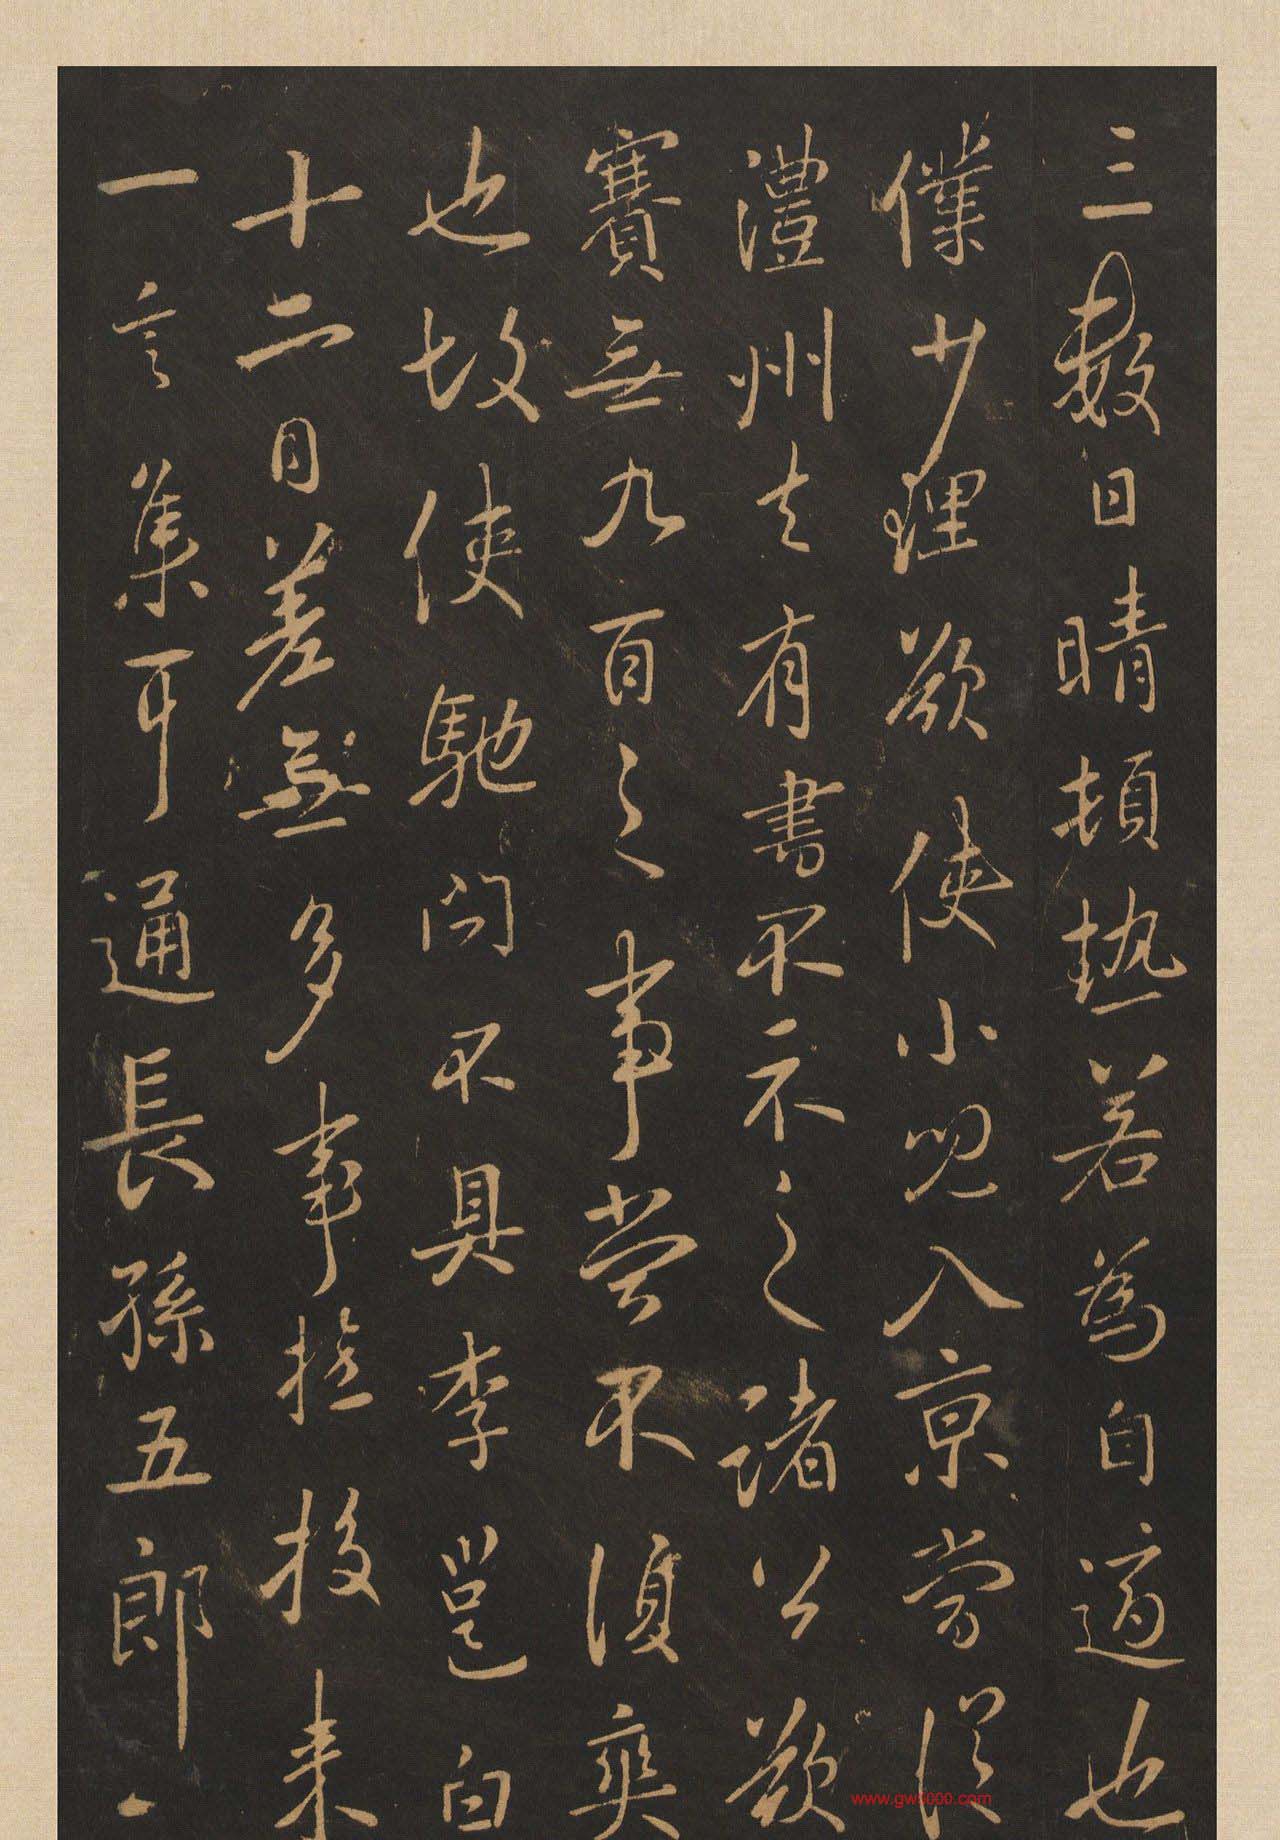 三數日晴頓熱若為自適也
僕少理欲使小兒入京當從
澧州去有書不示之諸公欲
賽無九百之事當不復爽
也故使馳問不具李邕白
十二日差無多事捨投來
一言集耳通長孫五郎
www.gw5000.com